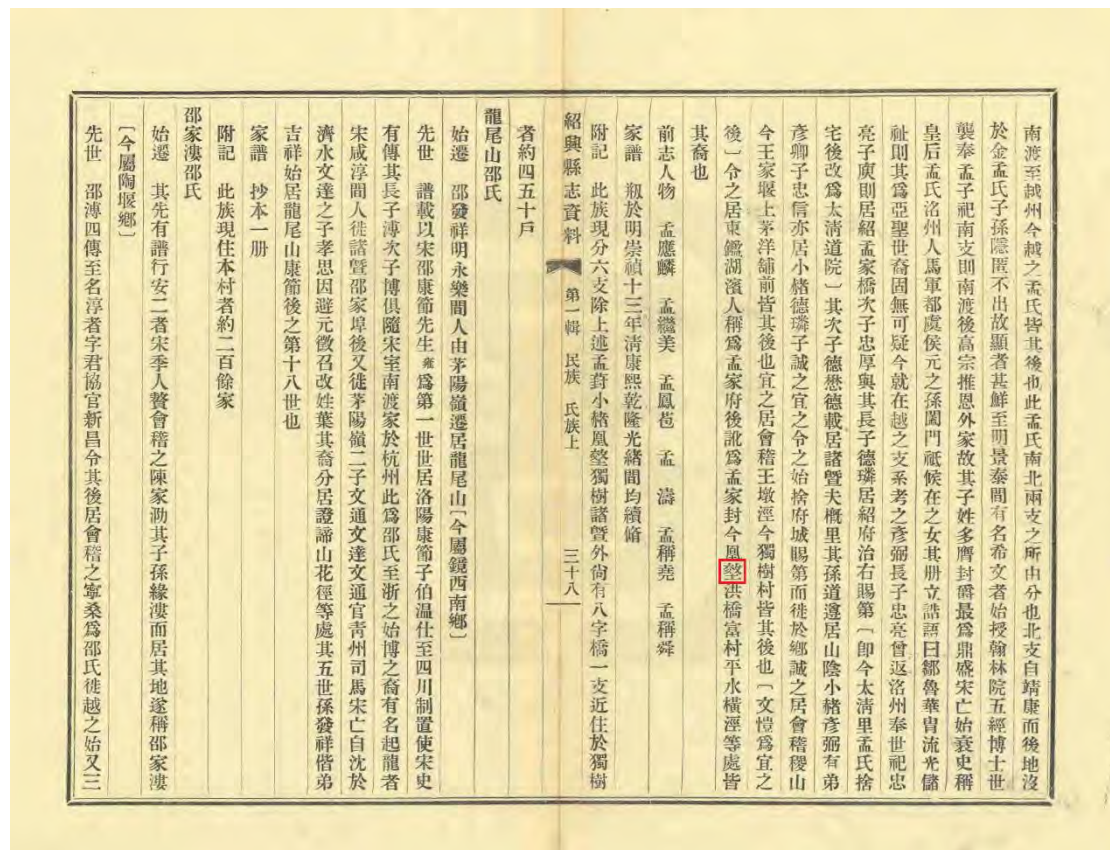 南渡至越州今越之孟氏皆其後也此孟氏南北兩支之所由分也北支自靖康而後地沒
於金孟氏子孫隱匿不出故顯者甚鮮至明景泰間有名希文者始授翰林院五經博士世
襲奉孟子祀南支則南渡後高宗推恩外家故其子姓多膺封爵最爲鼎盛宋亡始衰史稱
皇后孟氏洺州人馬軍都虞侯元之孫閤門祗候在之女其册立誥語曰鄒魯華胄流光儲
祉則其爲亞聖世裔固無可疑今就在越之支系考之彥弼長子忠亮曾返洺州奉世祀忠
亮子庾則居紹孟家橋次子忠厚與其長子德璘居紹府治右賜第〔即今太清里孟氏捨
宅後改爲太清道院〕其次子德懋德載居諸曁夫槪里其孫道遵居山陰小赭彥弼有弟
彥卿子忠信亦居小赭德璘子誠之宜之令之始捨府城賜第而徙於鄕誠之居會稽稷山
今王家堰上茅洋舖前皆其後也宜之居會稽王墩涇今獨樹村皆其後也〔文愷爲宜之
後〕令之居東鑑湖濱人稱爲孟家府後訛爲孟家封今凰壑洪橋富村平水橫涇等處皆
其裔也
前志人物　孟應麟　孟繼美　孟鳳苞　孟　濤　孟稱堯　孟稱舜
家譜　剏於明崇禎十三年清康熙乾隆光緒間均續脩
附記　此族現分六支除上述孟葑小赭凰壑獨樹諸曁外尙有八字橋一支近住於獨樹
紹興縣志資料　第一輯　民族　氏族上　三十八
者約四五十戶
龍尾山邵氏
始遷　邵發祥明永樂間人由茅陽嶺遷居龍尾山〔今屬鏡西南鄕〕
先世　譜載以宋邵康節先生雍爲第一世世居洛陽康節子伯溫仕至四川制置使宋史
有傳其長子溥次子博俱隨宋室南渡家於杭州此爲邵氏至浙之始博之裔有名起龍者
宋咸淳間人徙諸曁邵家埠後又徙茅陽嶺二子文通文達文通官靑州司馬宋亡自沈於
濟水文達之子孝思因避元徵召改姓葉其裔分居證諦山花徑等處其五世孫發祥偕弟
吉祥始居龍尾山康節後之第十八世也
家譜　抄本一册
附記　此族現住本村者約二百餘家
邵家漊邵氏
始遷　其先有譜行安二者宋季人贅會稽之陳家泐其子孫緣漊而居其地遂稱邵家漊
〔今屬陶堰鄕〕
先世　邵溥四傳至名淳者字君協官新昌令其後居會稽之寧桑爲邵氏徙越之始又三